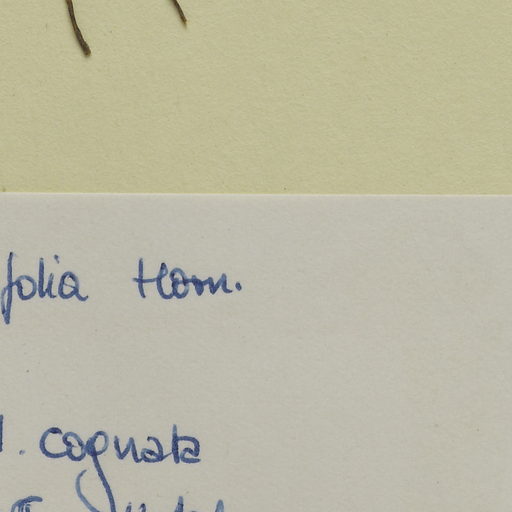 folia Horn.
. cognata